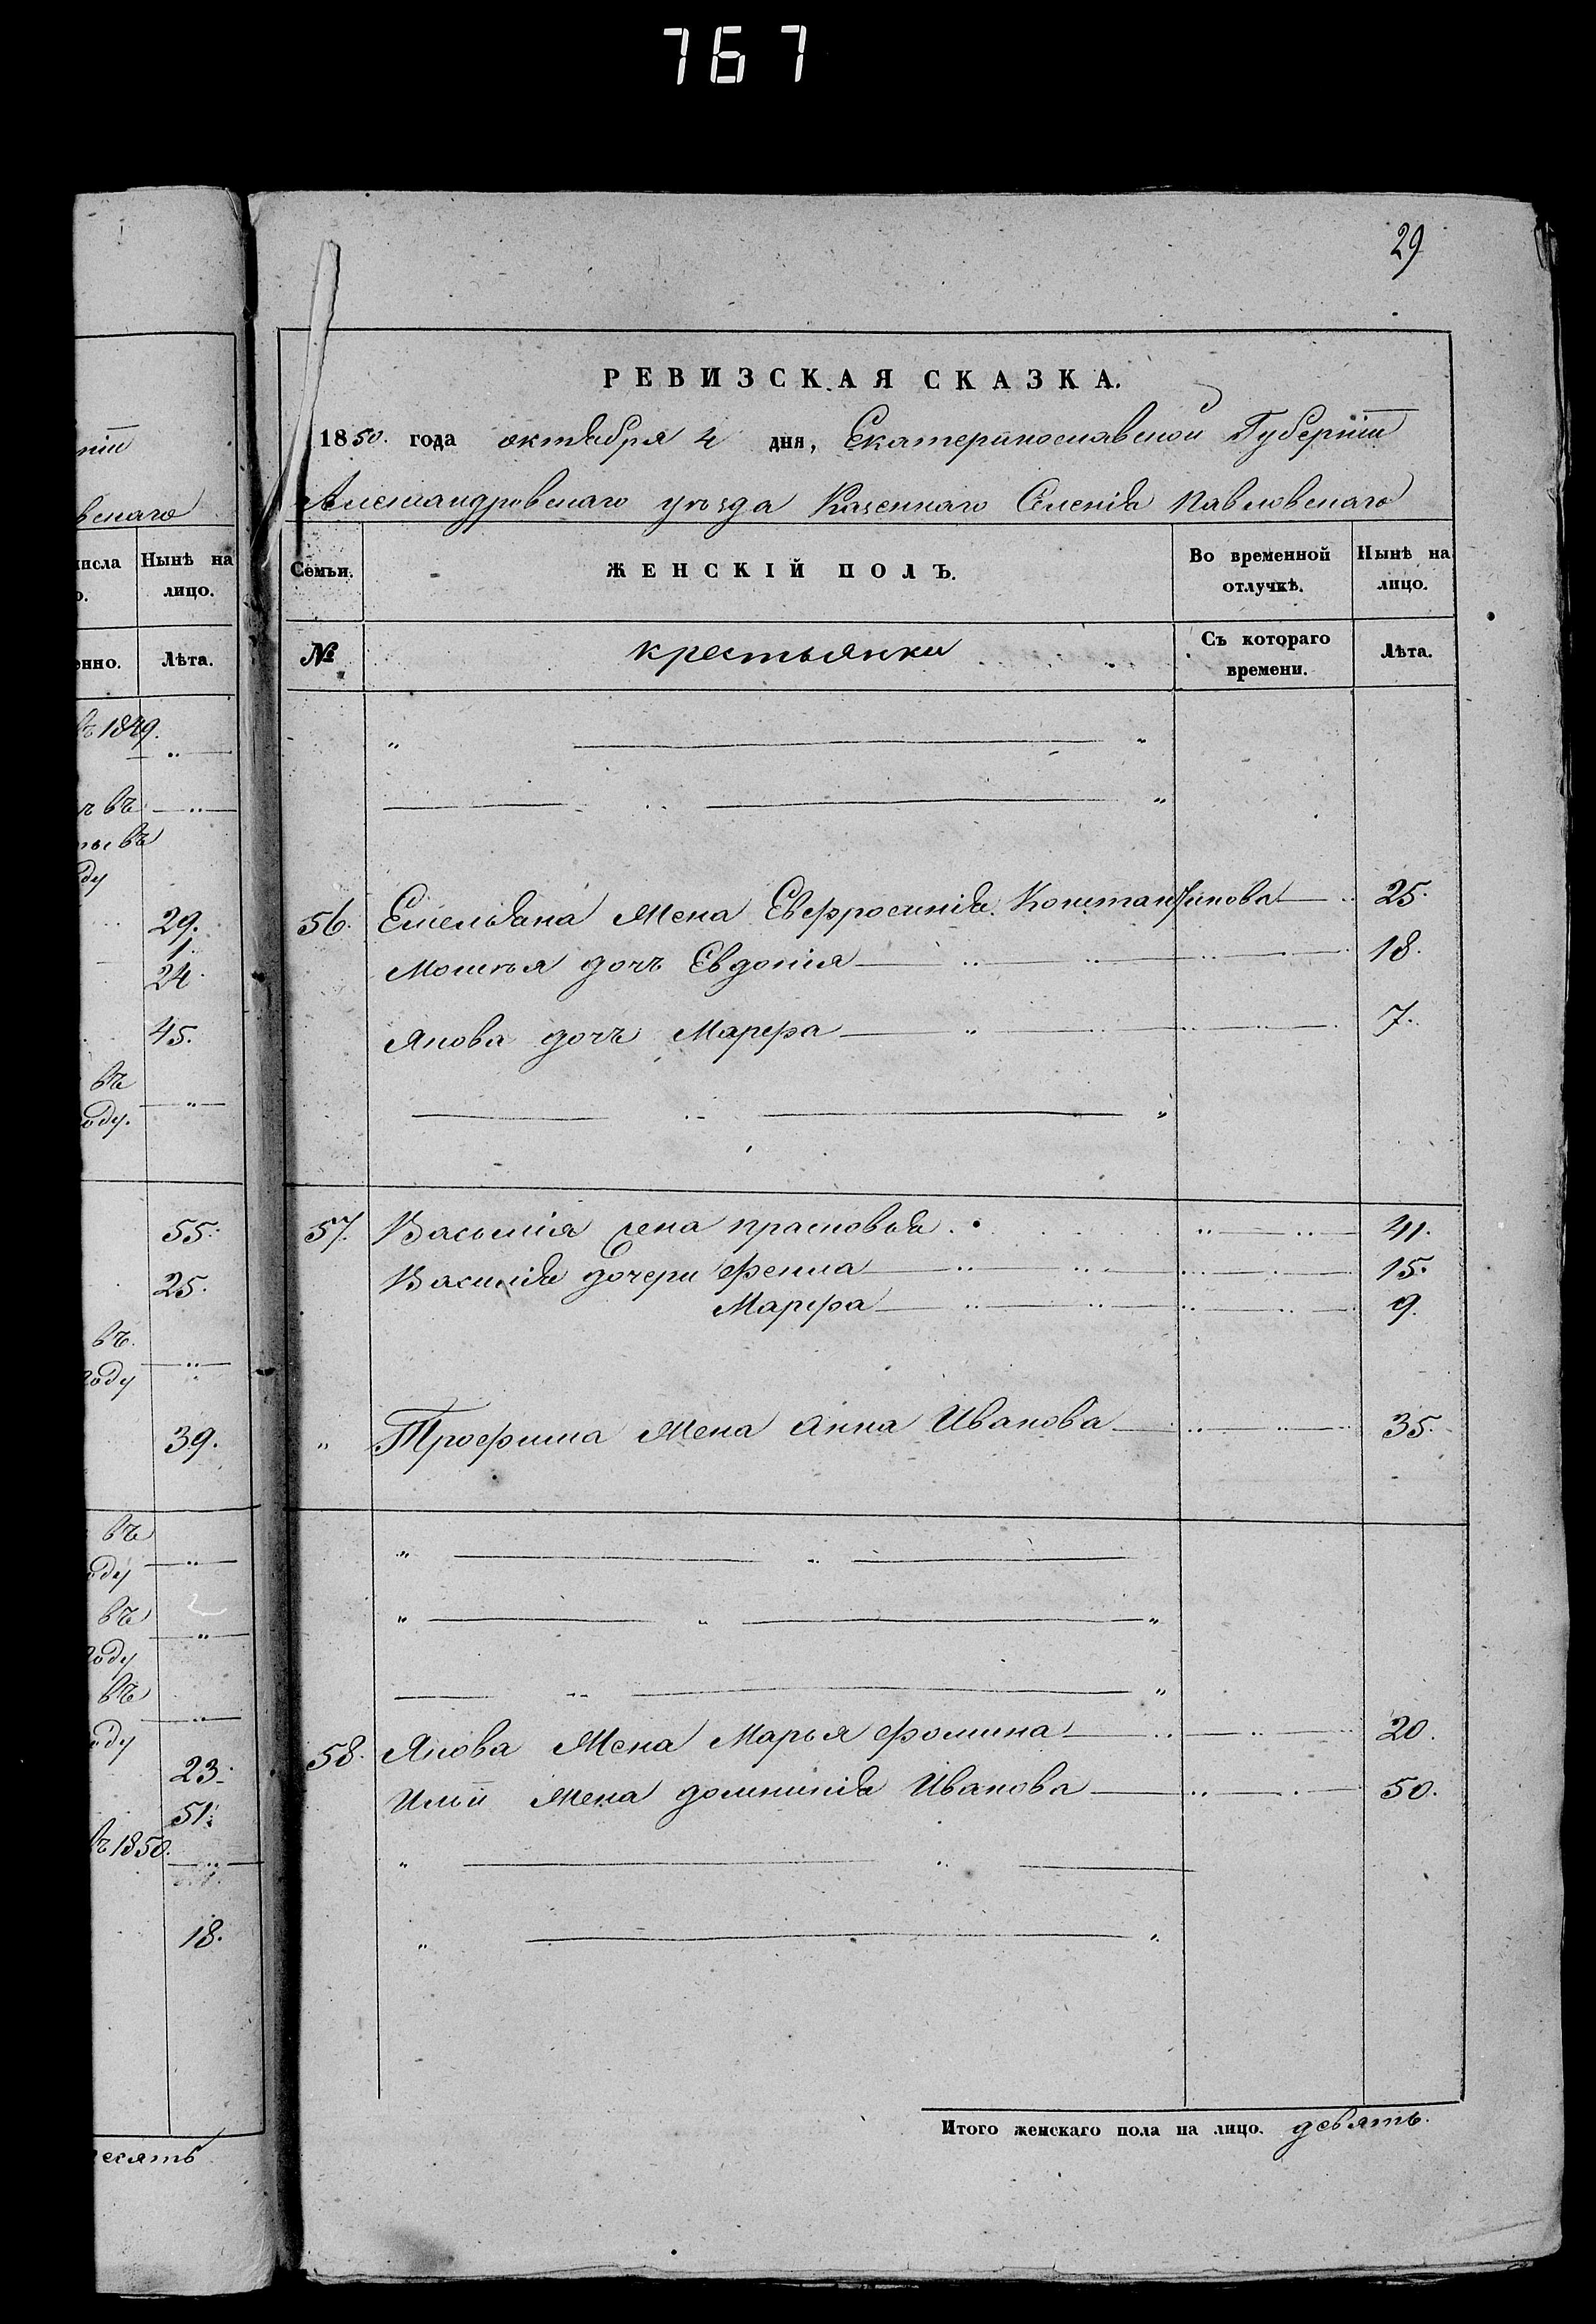 767
29
РЕВИЗСКАЯ СКАЗКА.
1850. года октября 4 дня, Екатеринославской Губернии
Александровскаго уѣзда Казеннаго Селенія Павловскаго
нiи
вскаго
числа Нынѣ на
о. лицо.
енно. Лѣта.
Семьи. ЖЕНСКІЙ ПОЛЪ. Во временной отлучкѣ. Нынѣ на лицо.
№ крестьянки Съ котораго времени. Лѣта.
въ 1849.
въ
въ
ду
29.
1.
24.
45.
въ
оду.
55.
25.
въ.
году
39.
въ
оду
въ
году
въ
оду
23.
51.
въ 1850.
18.
есять
56. Емельяна жена Евфросинія Константинова 25.
Мосія дочь Евдокія 18.
Якова дочь Марфа 7.
57. Василія жена прасковья 41.
Василія дочери Фекла 15.
Марфа 9.
" Трофима жена Анна Иванова 35.
58. Якова жена Марья Фомина 20.
Ильи жена домникія Иванова 50.
Итого женскаго пола на лицо. девять.